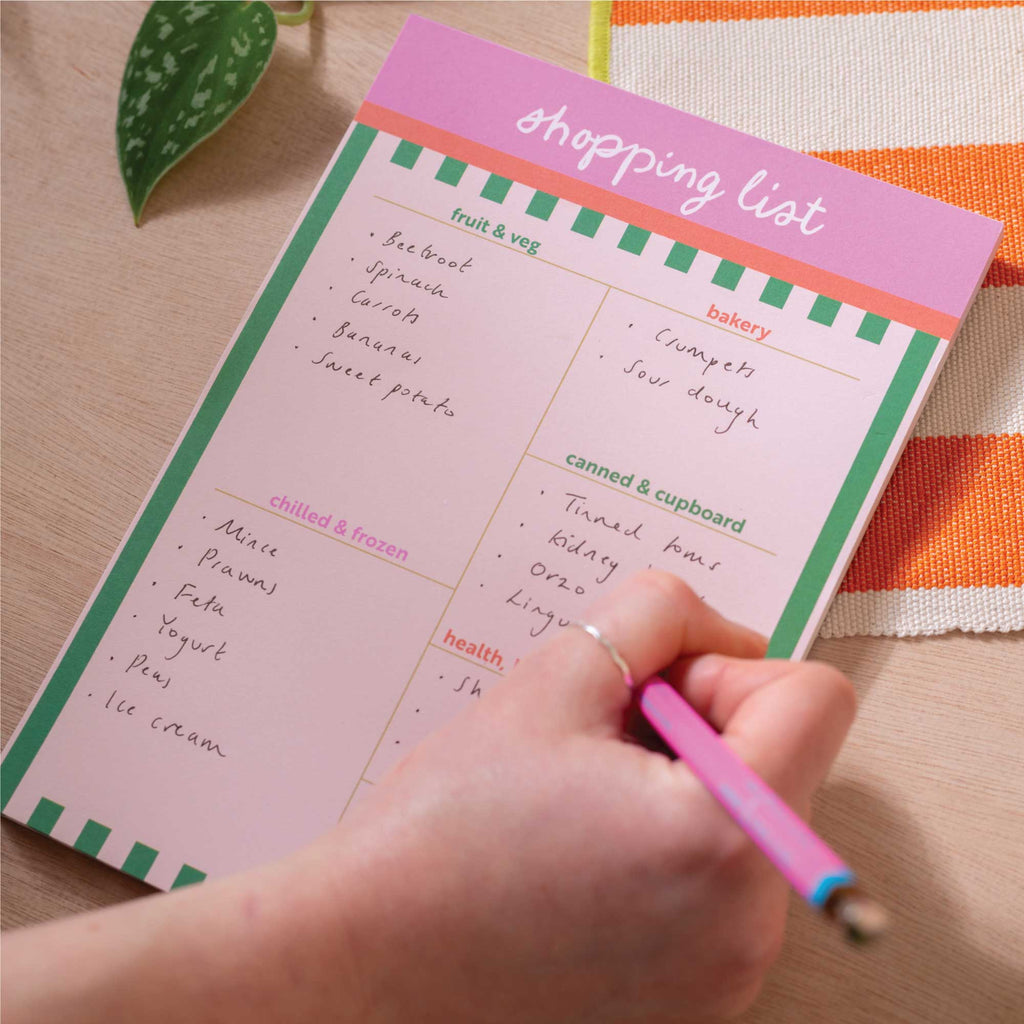 shopping list
fruit & veg
• Beetroot
• Spinach
• Carrots
• Bananas
• Sweet potato
bakery
• Crumpets
• Sour dough
canned & cupboard
• Tinned toms
• Kidney
• Orzo
• Lingu
chilled & frozen
• Mince
• Prawns
• Feta
• Yogurt
• Peas
• Ice cream
health,
• Sh